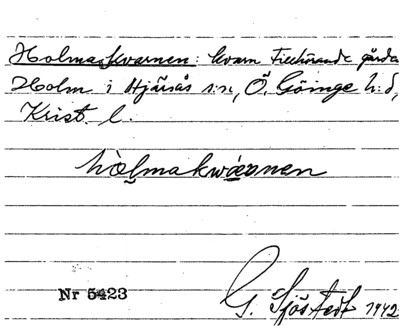 Holmaskvarnen: kvarn tillhörande gården
Holm i Hjärsås s:n, Ö. Göinge h:d,
Krist. l.
hòlmakwæ̀rnen
Nr 5423
G. Sjöstedt 1942